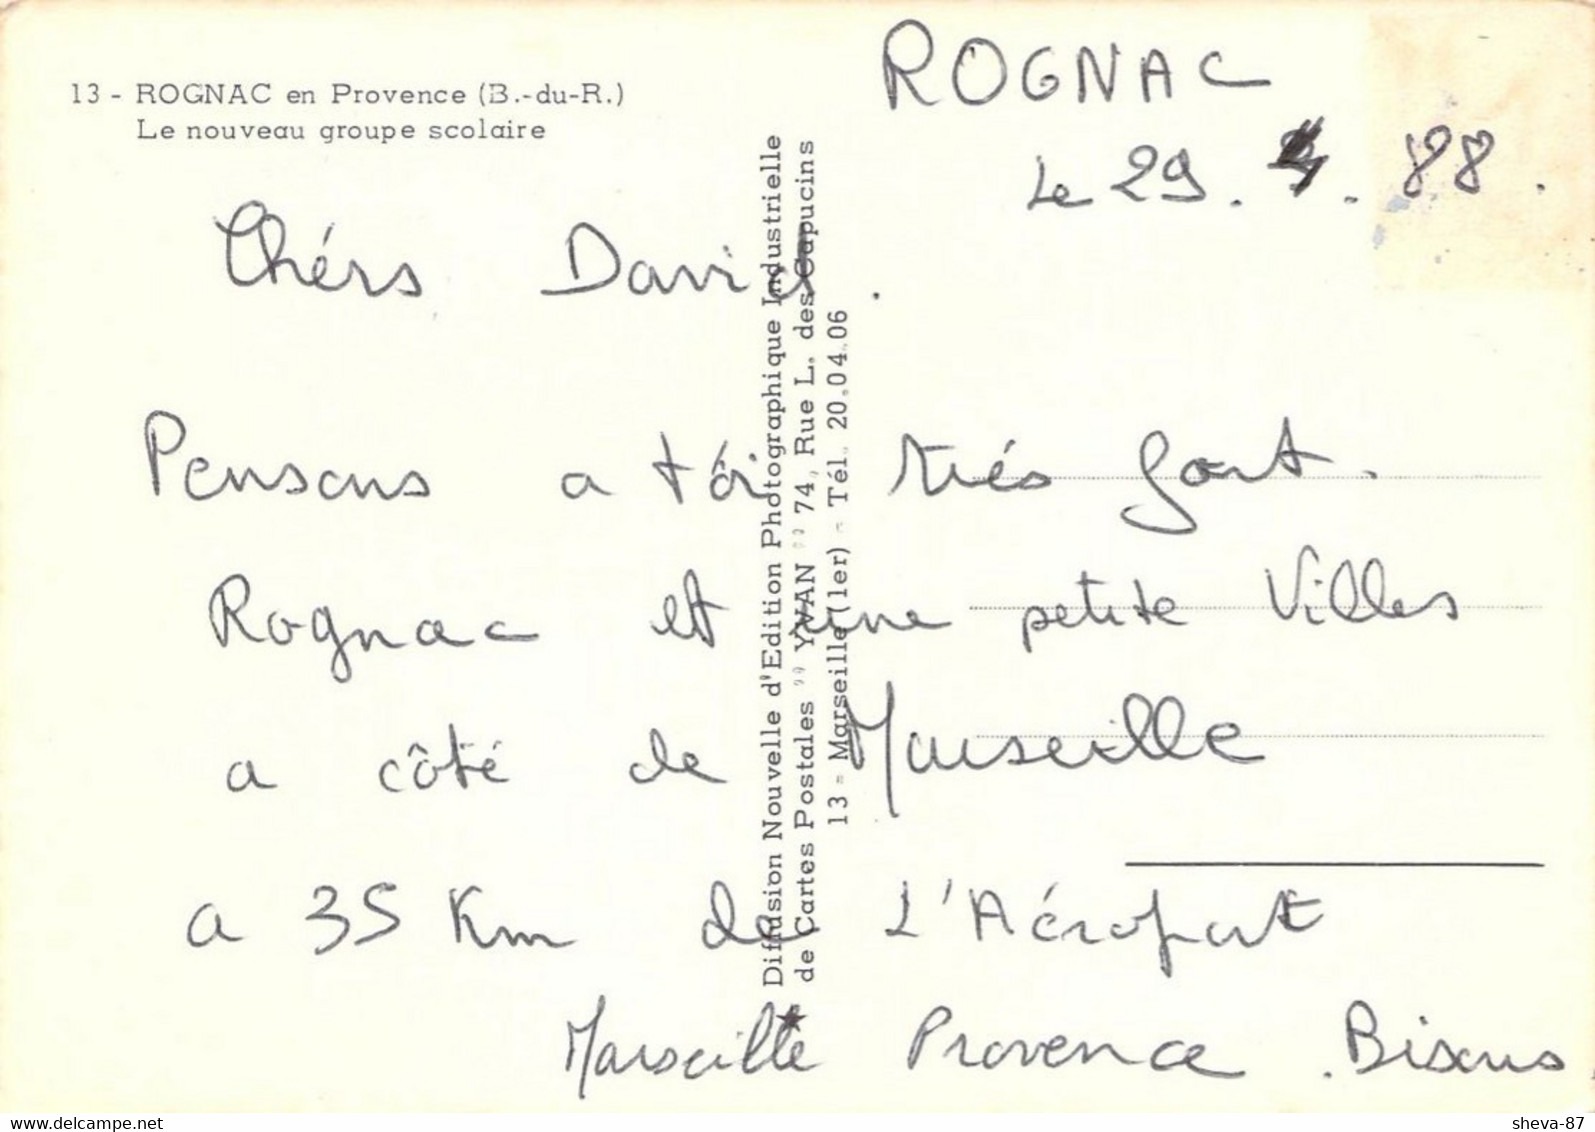 13 - ROGNAC en Provence (B.-du-R.)
Le nouveau groupe scolaire
ROGNAC
Le 29. . 88.
Chérs David.
Pensons a tôi trés fort.
Rognac et une petite Villes
a côté de Marseille
a 35 Km de L'Aéroport
Marseille Provence. Bisous
Diffusion Nouvelle d'Edition Photographique Industrielle
de Cartes Postales " YVAN " 74, Rue L. des Capucins
13 - Marseille (1er) - Tél. 20.04.06
sheva-87